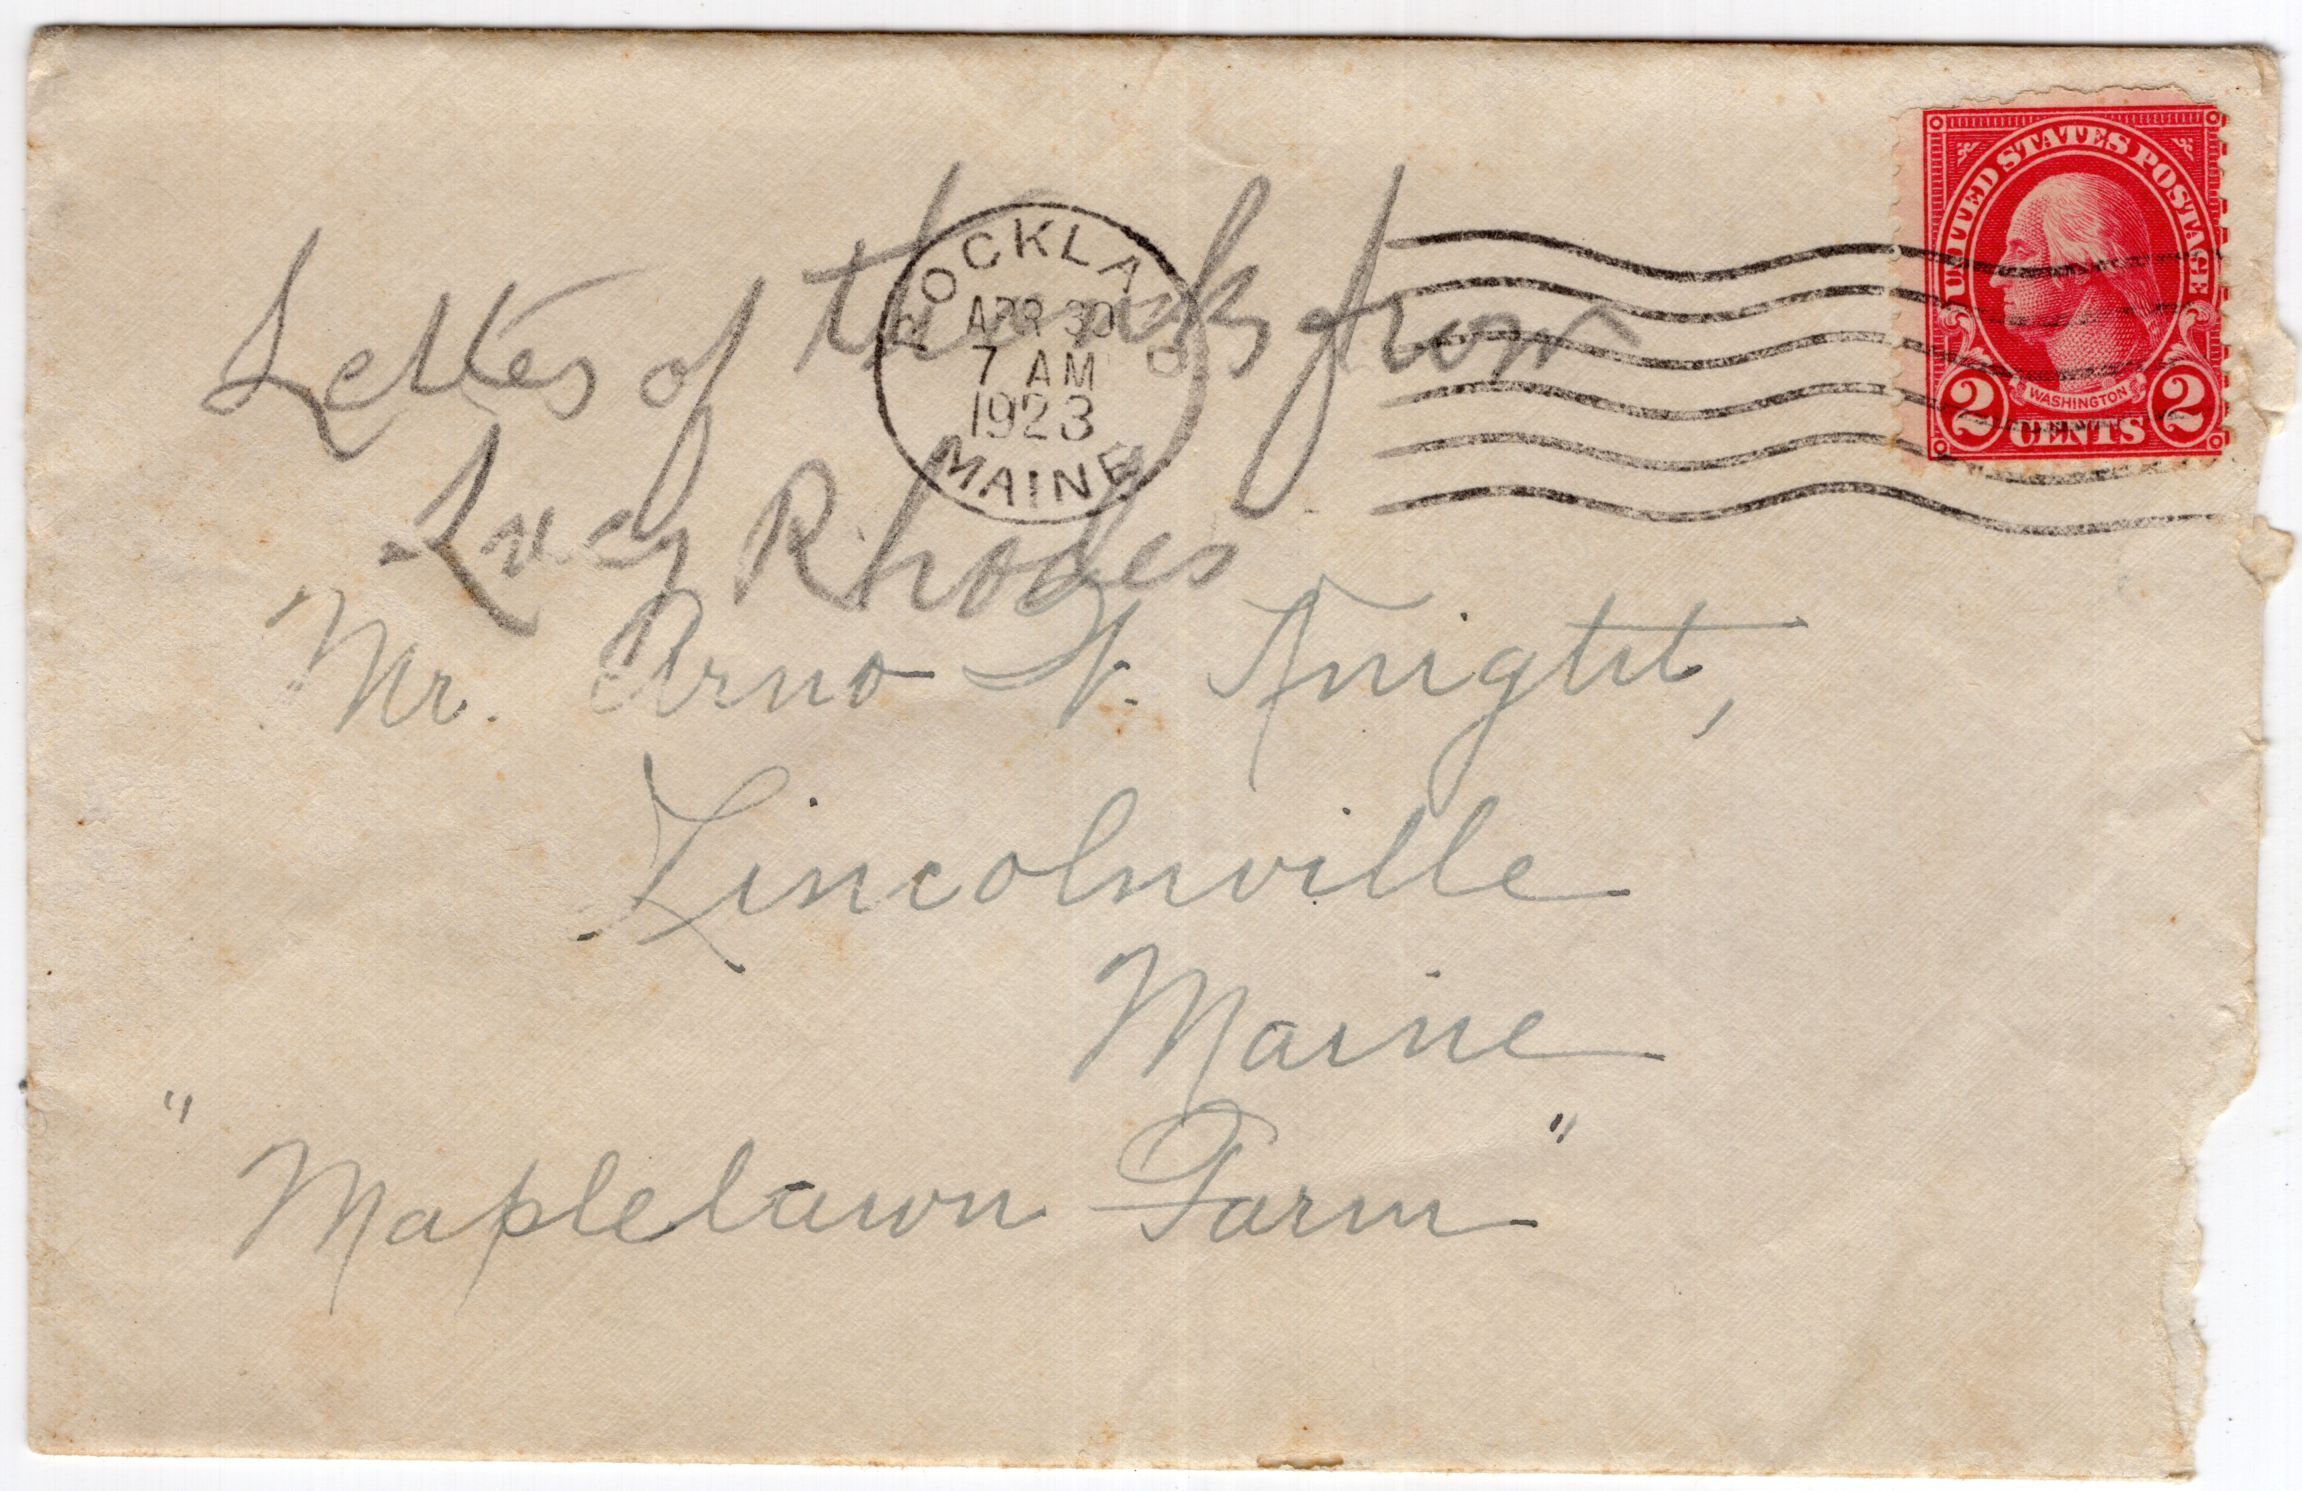 UNITED STATES POSTAGE
WASHINGTON
2 CENTS 2
ROCKLA D
APR 30
7 AM
1923
MAINE
Letter of thanks from
Lucy Rhodes
Mr. Arno W. Knight,
Lincolnville
Maine
"Maplelawn Farm"